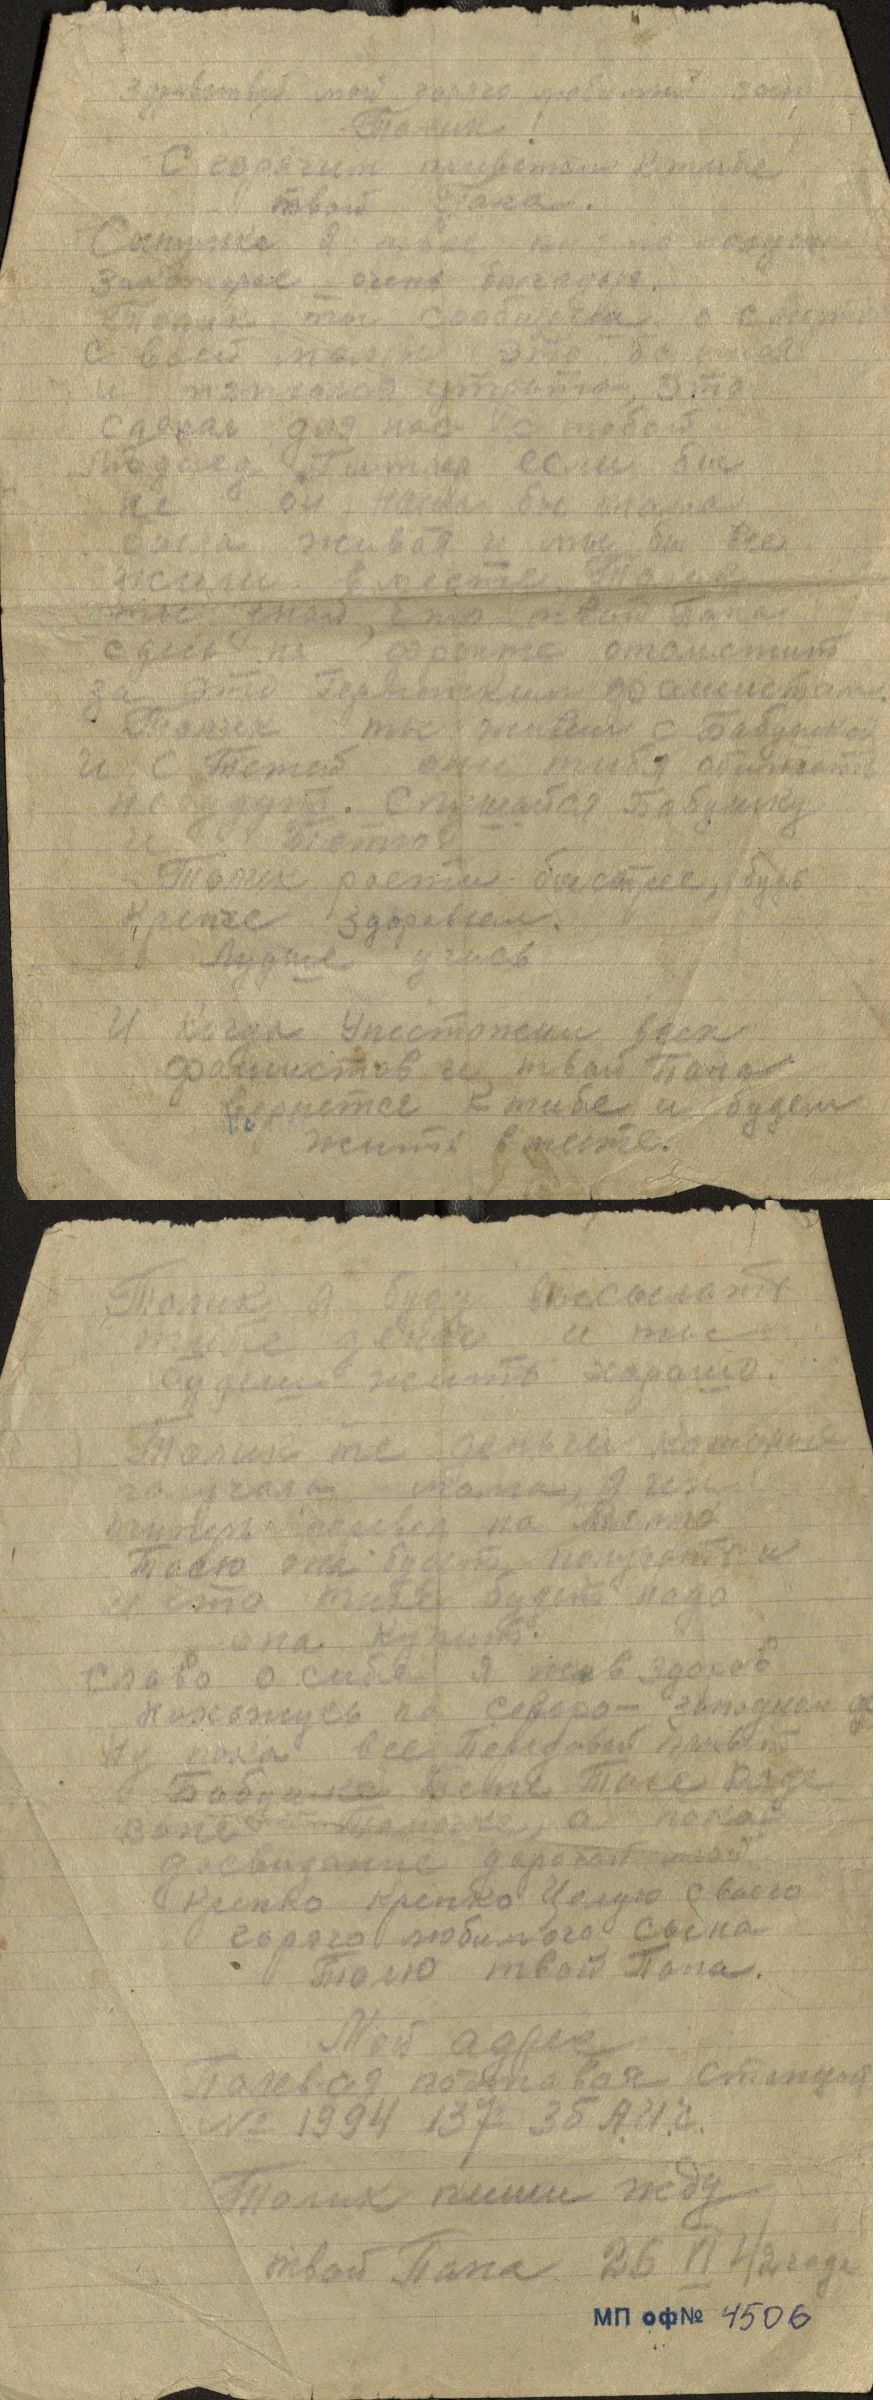 Здравствуй мой горячо любимый сын
Толик!
С горячим приветом к тибе
твой Папа.
Сыпулька я твое письмо получил
За которое очень благодарю.
Толик ты сообщаеш о смерти
своей мамы это большая
и тяжолая утрата, это
сделал для нас с тобой
Людоед Гитлер если бы
не он наша бы мама
была живая и мы бы все
жили вместе. Толик
ты знай, что твой Папа
сдесь на фронте отомстит
за это Германским фашистам.
Толик ты живеш с Бабушкой
И с Тетей они тибя обижать
небудут. Слушайся Бабушку
и Тетю
Толик расти быстрее, будь
крепче здоровьем.
Лудше учись
И Когда Унистожим всех
фашистов и твой Папа
вернется к тибе и будем
жить вместе.
Толик я буду высылать
тибе денег и ты
будеш жить харошо.
Толик те деньги которые
получала мама, я их
теперь перевел на
Тасю она будет получать и
и что тибе будет надо
она купит.
Слово о сибе я жив здоров
Нахожусь на северо-западном
Ну пока все Передовай привет
Бабушке Тети Тасе Дяде
Ване а пока
досвидание дорогой мой
Крепко крепко Целую своего
горячо любимого сына
Толю твой Папа.
Мой адрес
Полевая почтовая Станция
№ 1994 137 ЗБ А.И.Ч.
Толик пиши жду
твой Папа 26 VI 42 года
МП оф№ 4506